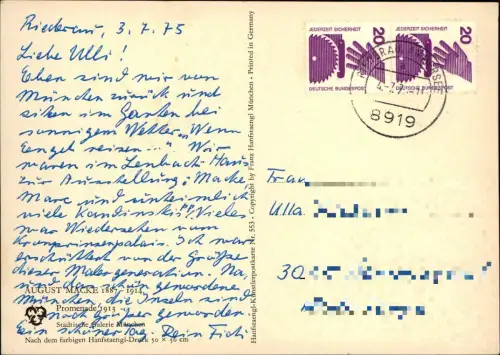 Riederau, 3.7.75
Liebe Ulli!
Eben sind wir von
München zurück und
sitzen im Garten bei
sonnigem Wetter, "Wenn
Engel reisen..." Wir
waren im Lenbach-Haus
zur Ausstellung: Macke
Marc und
viele Kandinski's, Vieles
war Wiedersehen vom
Kronprinzenpalais. Ich war
erschüttert von der Größe
dieser Malergeneration. Na,
und das schön gewordene
AUGUST MACKE 1887-1914
München, die Inseln sind
Promenade 1913
noch größer geworden.
Städtische Galerie München
ein schöner Tag. Dein
Nach dem farbigen Hanfstaengl-Druck 50 × 56 cm
Hanfstaengl-Künstlerpostkarte Nr. 553 • Copyright by Franz Hanfstaengl München • Printed in Germany
JEDERZEIT SICHERHEIT
20
DEUTSCHE BUNDESPOST
JEDERZEIT SICHERHEIT
20
DEUTSCHE BUNDESPOST
8919
Frau
Ulla
30